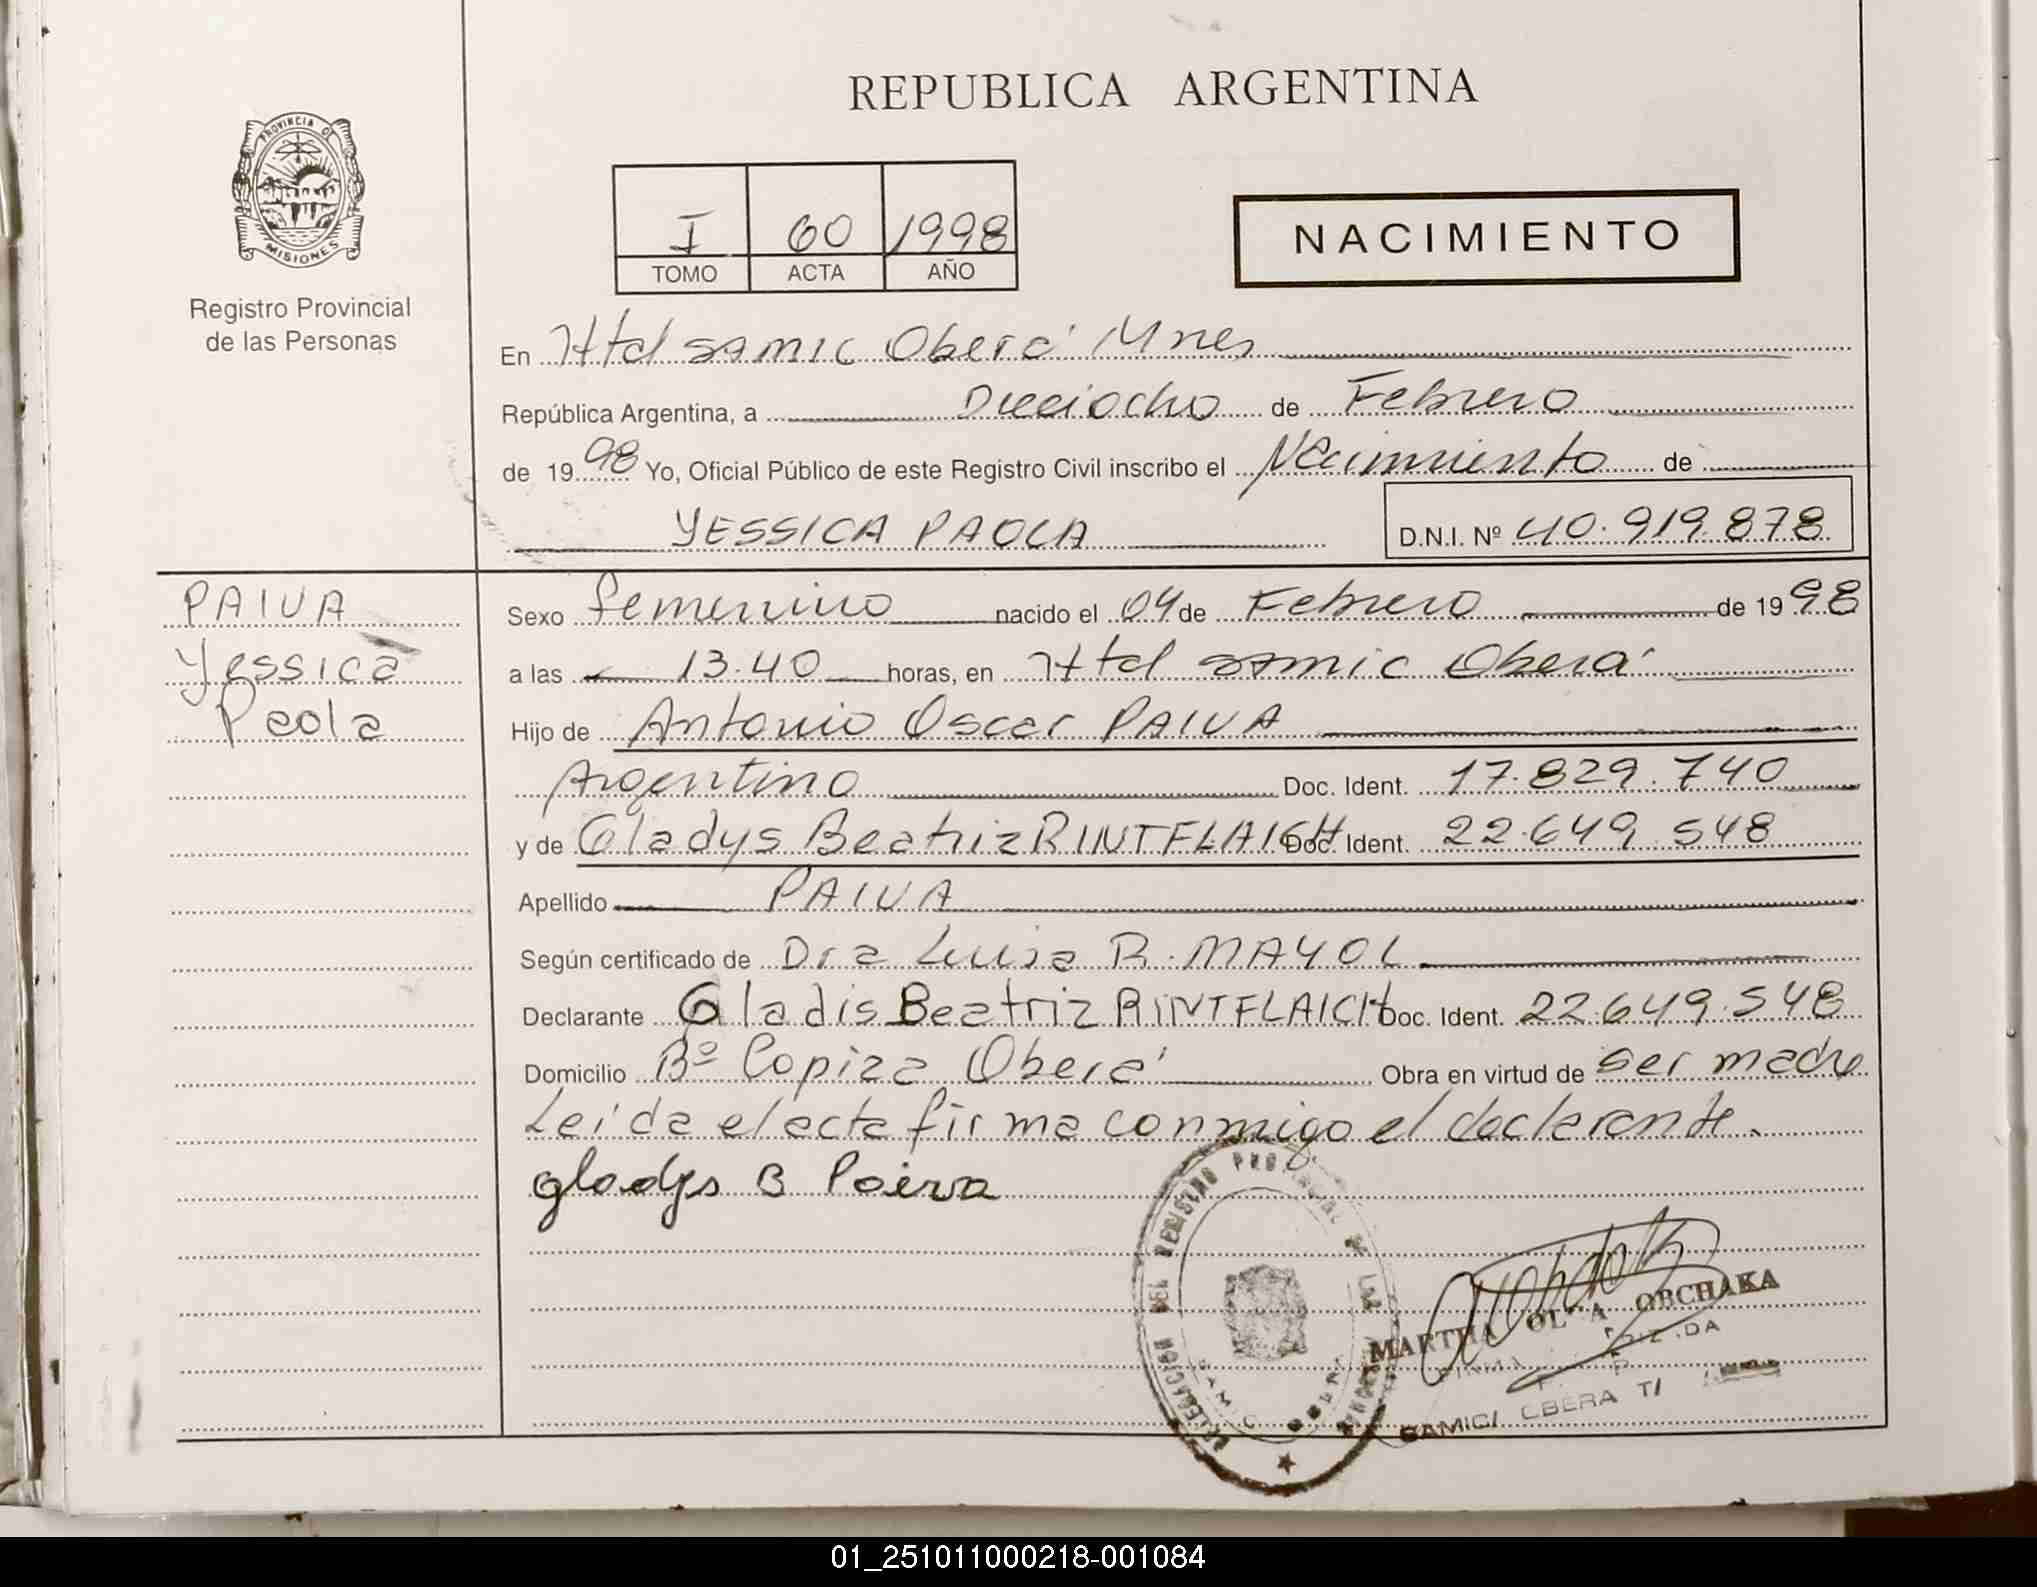 REPUBLICA ARGENTINA
PROVINCIA DE
MISIONES
Registro Provincial
de las Personas
I 60 1998
TOMO ACTA AÑO
NACIMIENTO
En Htal SAMIC Oberá Mnes
República Argentina, a Dieciocho de Febrero
de 1998 Yo, Oficial Público de este Registro Civil inscribo el Nacimiento de
YESSICA PAOLA D.N.I. Nº 40.919.878
PAIVA
Yessica
Paola
Sexo femenino nacido el 04 de Febrero de 1998
a las 13.40 horas, en Htal SAMIC Oberá
Hijo de Antonio Oscar PAIVA
Argentino Doc. Ident. 17.829.740
y de Gladys Beatriz RINTFLAICH Doc. Ident. 22.649.548
Apellido PAIVA
Según certificado de Dra Luisa R. MAYOL
Declarante Gladis Beatriz RINTFLAICH Doc. Ident. 22.649.548
Domicilio Bº Copiza Oberá Obra en virtud de ser madre
Leída el acta firma conmigo el declarante.
gladys B Paiva
DELEGACION DEL REGISTRO PROVINCIAL DE LAS
SAMIC OBERA
MARTHA OLGA OBCHAKA
SAMIC OBERA
01_251011000218-001084